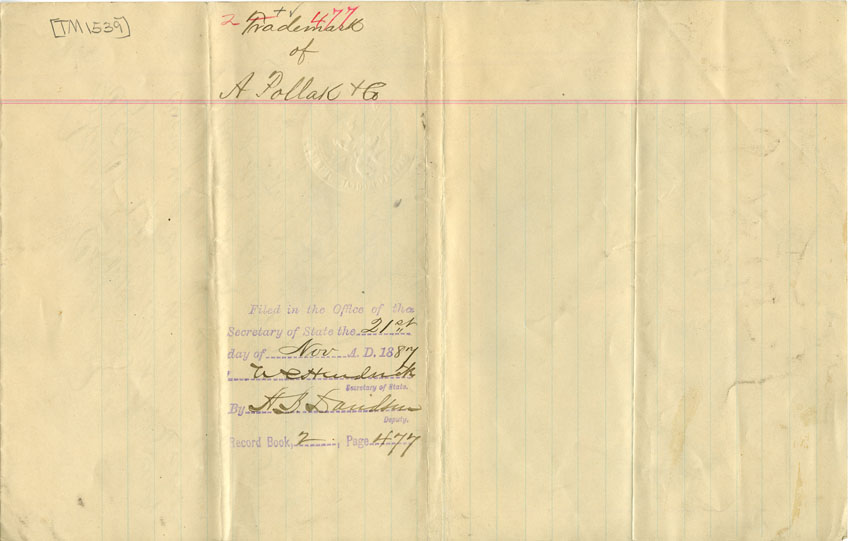 [TM1539]
2 477
Trademark
of
A Pollak + Co
Filed in the Office of the
Secretary of State the 21st
day of Nov A. D. 1887
W C Hendricks
Secretary of State.
By H. B. Davidson
Deputy.
Record Book, 2, Page 477